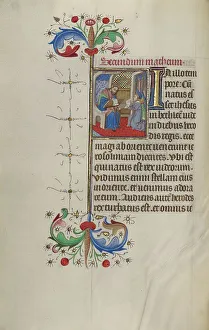 Secundum matheum
In illo tem
pore: Cu
natus es
set ihesus
in bethleem
in diebus hero
dis regis.
magi ab oriente venerunt ie
rosolimam dicentes. Ubi est
qui natus est rex iudeorum.
vidimus enim stellam eius
in oriente. et venimus adora
re eum. Audiens autem herodes
rex turbatus est. et omnis ie